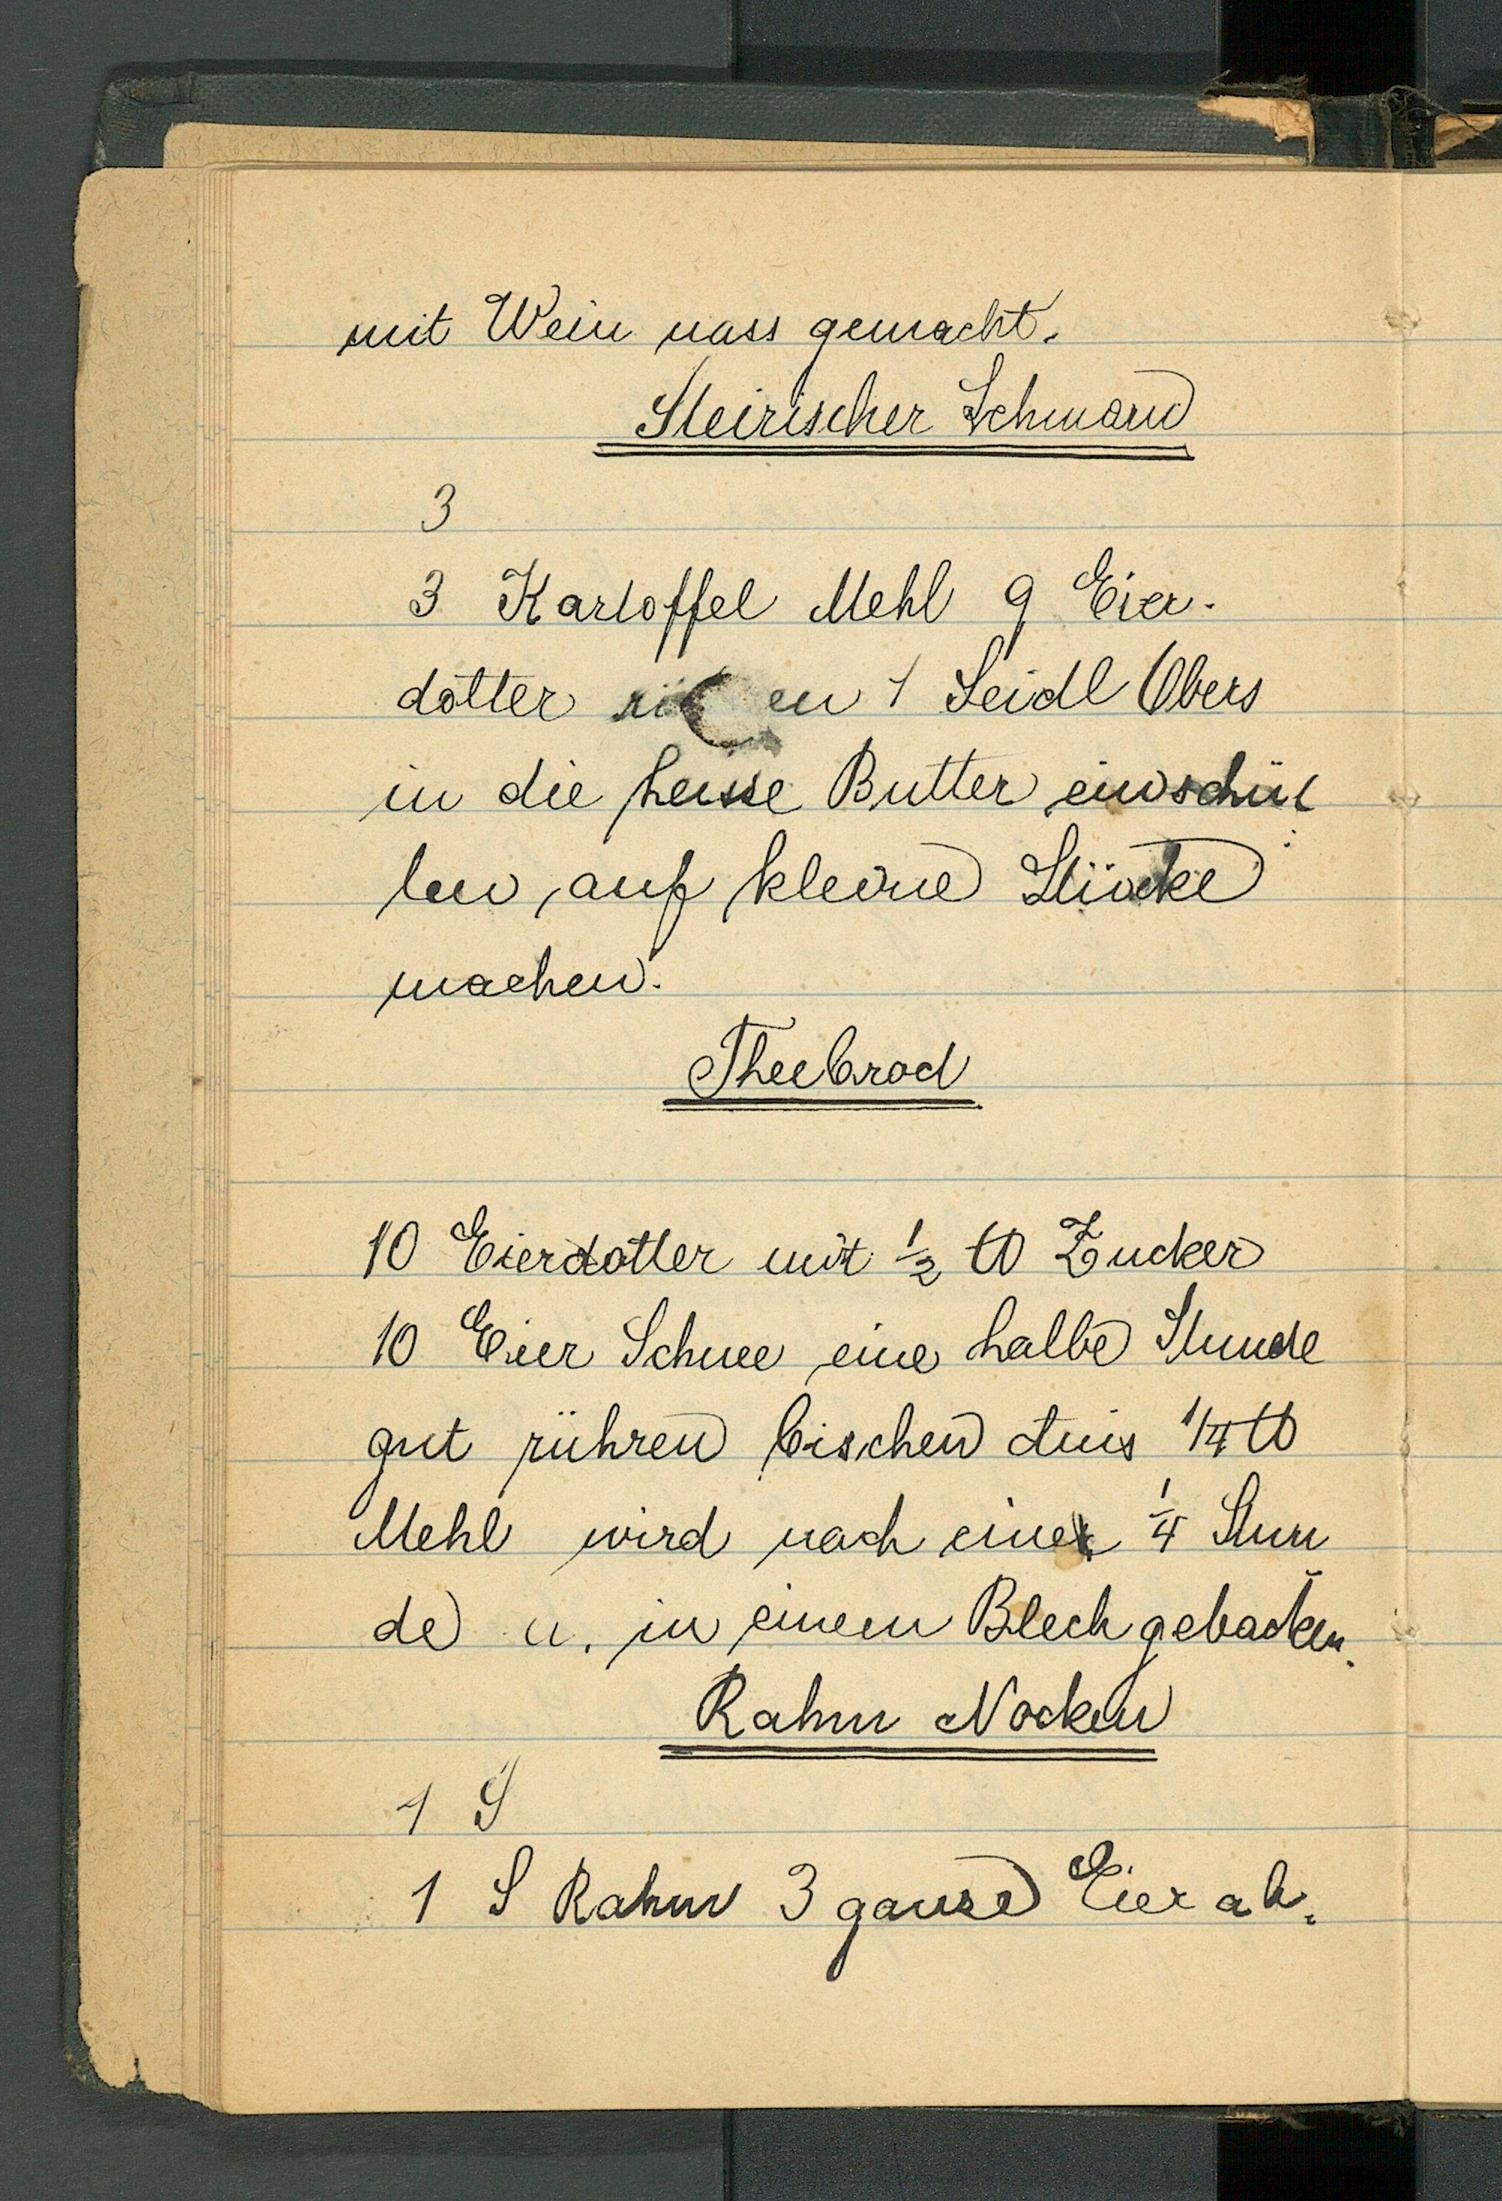 mit Wein nass gemacht.
Steirischer Schmarn
3
3 Kartoffel Mehl 9 Eier-
dotter en 1 Seidl Obers
in die heisse Butter einschüt
ten, auf kleine Stücke
machen.
Theebrod
10 Eierdotter mit ½ ℔ Zucker
10 Eier Schnee eine halbe Stunde
gut rühren bischen Anis 1/4 ℔
Mehl wird nach einer ¼ Stun
de u. in einem Blech gebacken.
Rahm Nocken
1 S
1 S Rahm 3 ganze Eier ab-